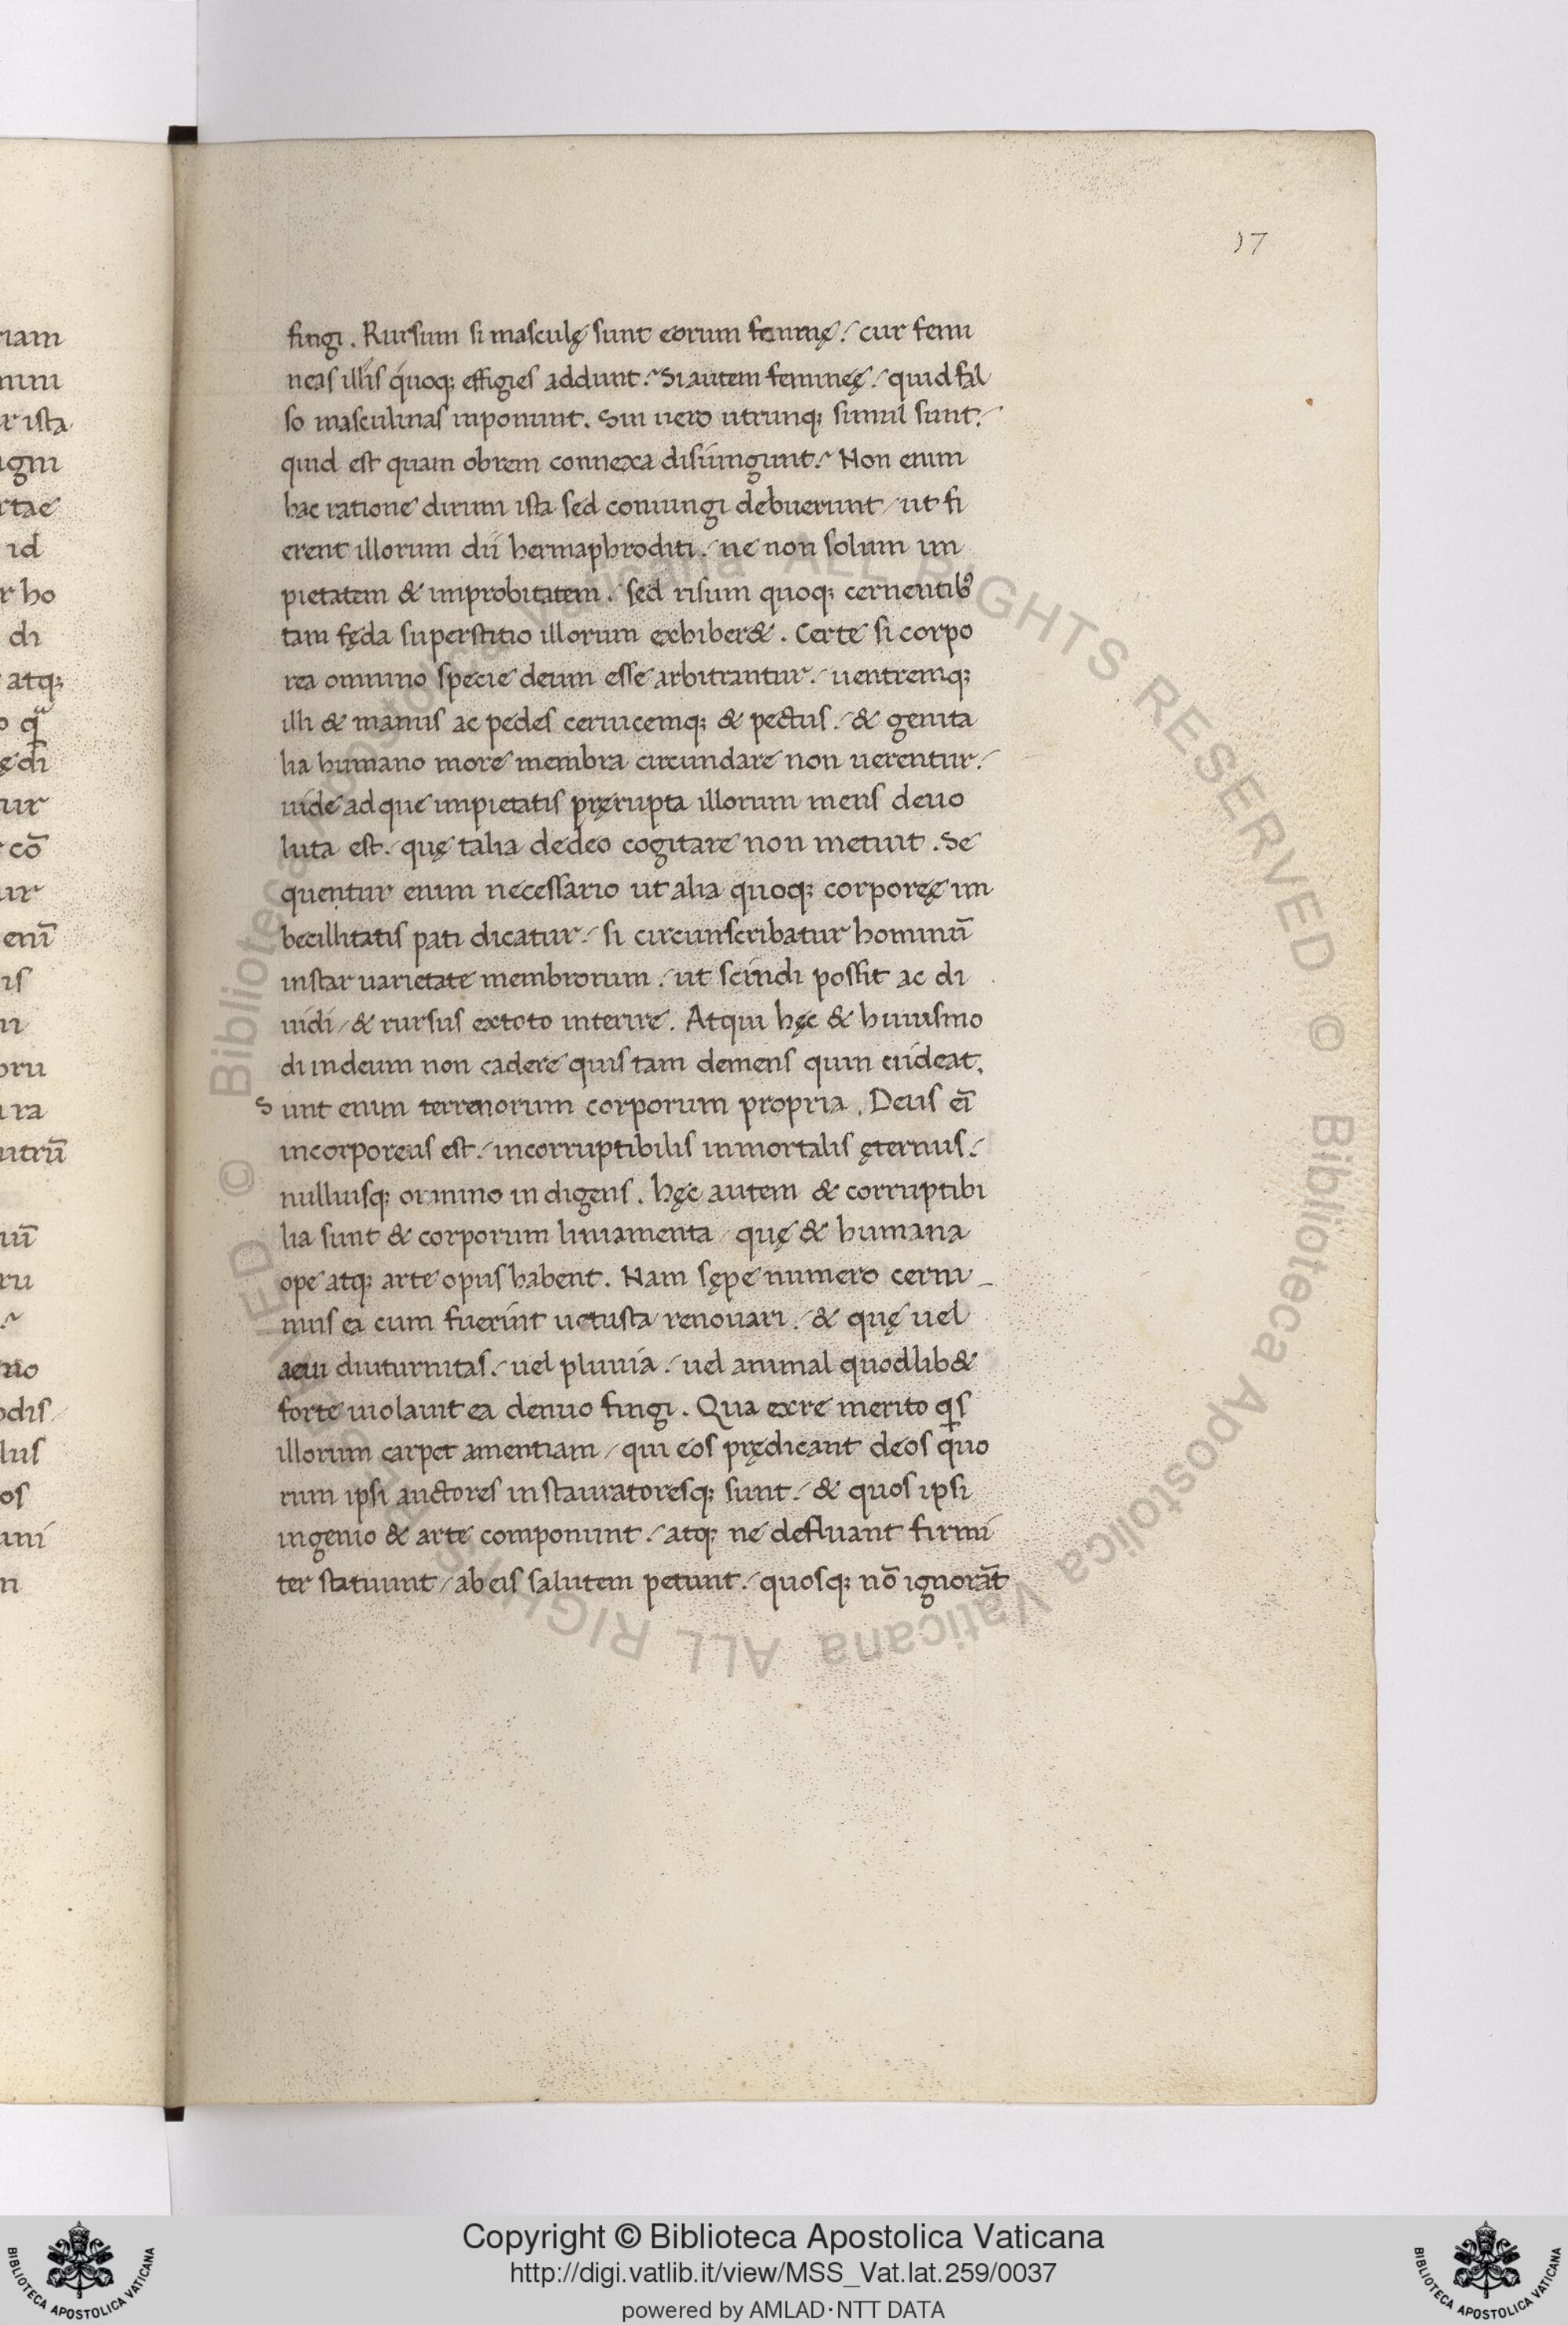 17
fingi. Rursum si masculę sunt eorum formę! cur femi
neas illis quoq; effigies addunt? Si autem femineę! quid fal
so masculinas inponunt. Sin uero utrunq; simul sunt!
quid est quam obrem connexa disiungunt? Non enim
hac ratione dirimi ista sed coniungi debuerunt / ut fi
erent illorum dii hermaphroditi! ne non solum im
pietatem & improbitatem! sed risum quoq; cernentib9
tam fęda superstitio illorum exhiber&. Certe si corpo
rea omnino specie deum esse arbitrantur! uentremq;
illi & manus ac pedes ceruicemq; & pectus! & genita
lia humano more membra circundare non uerentur!
uide ad que impietatis pręrupta illorum mens deuo
luta est! quę talia dedeo cogitare non metuit. Se
quentur enim necessario ut alia quoq; corporeę im
becillitatis pati dicatur! si circunscribatur hominū
instar uarietate membrorum! ut scindi possit ac di
uidi / & rursus extoto interire. Atqui hęc & huiusmo
di indeum non cadere quis tam demens quin uideat.
Sunt enim terrenorum corporum propria. Deus eī
incorporeus est! incorruptibilis inmortalis ęternus!
nulliusq; omnino indigens. hęc autem & corruptibi
lia sunt & corporum liniamenta / quę & humana
ope atq; arte opus habent. Nam sępe numero cerni_
mus ea cum fuerint uetusta renouari! & quę uel
aeui diuturnitas! uel pluuia! uel animal quodlib&
forte uiolauit ea denuo fingi. Qua exre merito qis
illorum carpet amentiam / qui eos prędicant deos quo
rum ipsi auctores instauratoresq; sunt! & quos ipsi
ingenio & arte componunt! atq; ne defluant firmi
ter statuunt / ab eis salutem petunt! quosq; nō ignorāt
Copyright © Biblioteca Apostolica Vaticana
http://digi.vatlib.it/view/MSS_Vat.lat.259/0037
powered by AMLAD·NTT DATA
BIBLIOTECA APOSTOLICA VATICANA
BIBLIOTECA APOSTOLICA VATICANA